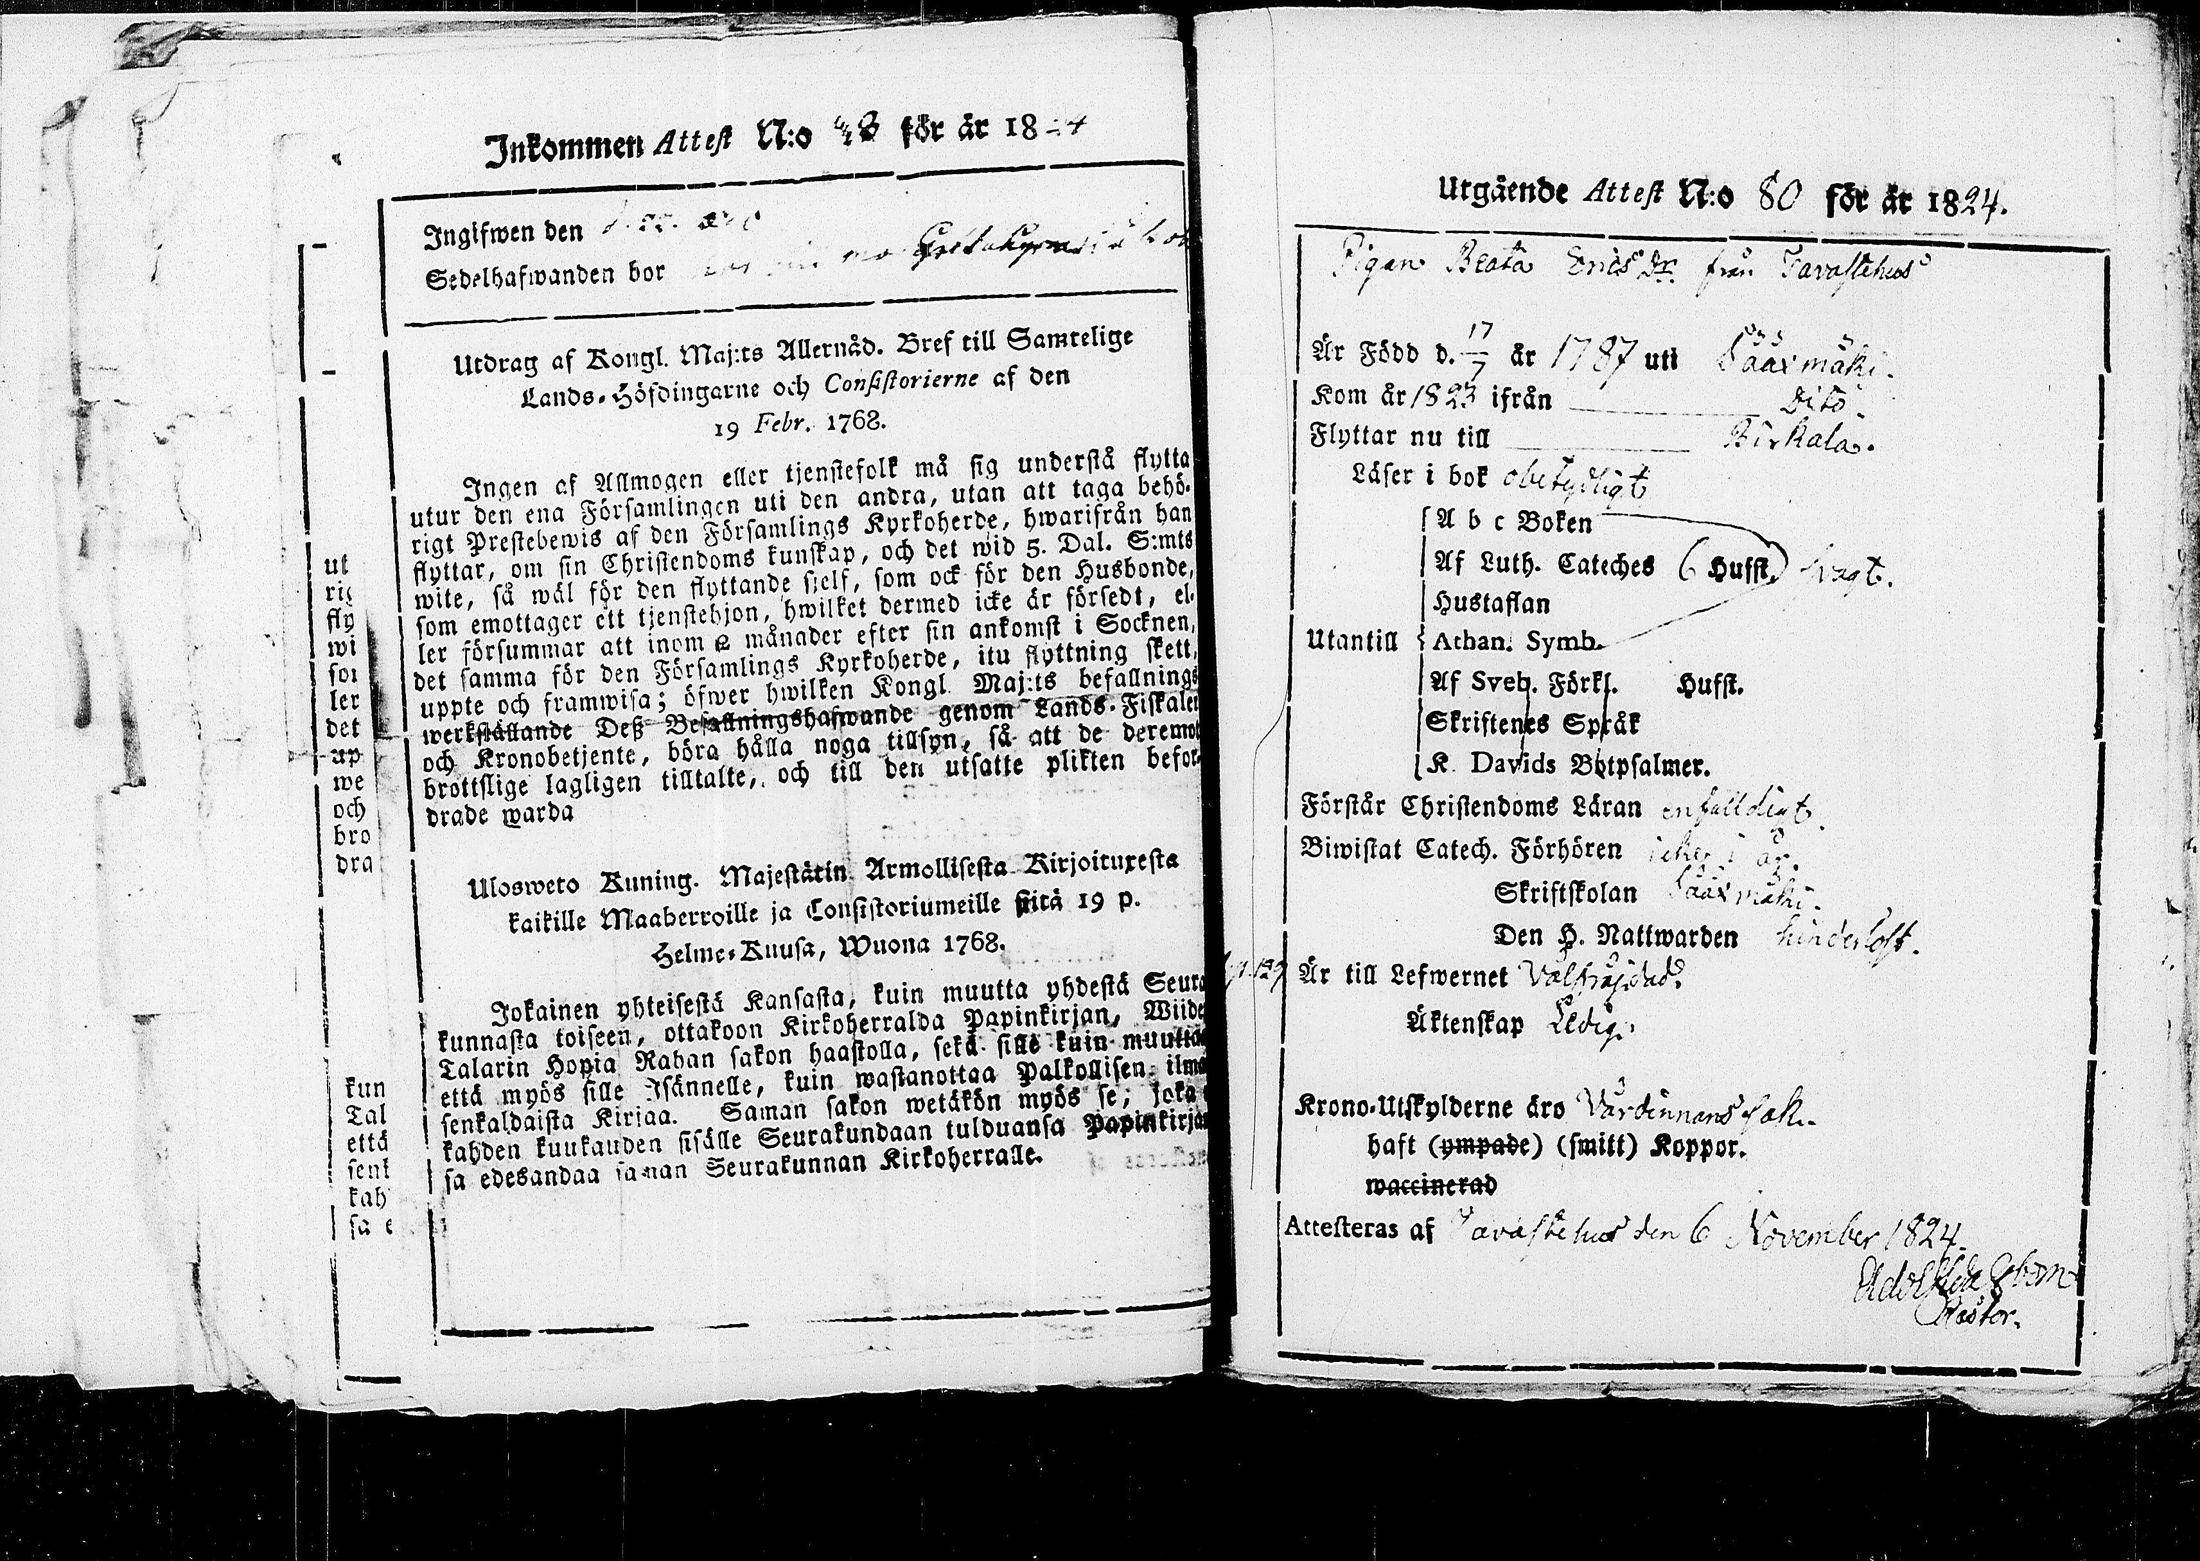 Inkommen Attest N:o 48 för år 1824
Ingifwen den
Sedelhafwanden bor
Utdrag af Kongl. Maj:ts Allernåd. Bref till Samtelige
Lands-Höfdingarne och Consistorierne af den
19 Febr. 1768.
Ingen af Allmogen eller tjenstefolk må sig understå flytta
utur den ena Församlingen uti den andra, utan att taga behö-
rigt Prestebewis af den Församlings Kyrkoherde, hwarifrån han
flyttar, om sin Christendoms kunskap, och det wid 5. Dal. S:mts
wite, så wäl för den flyttande sjelf, som ock för den Husbonde,
som emottager ett tjenstehjon, hwilket dermed icke är försedt, el-
ler försummar att inom 2 månader efter sin ankomst i Socknen,
det samma för den Församlings Kyrkoherde, itu flyttning skett,
uppte och framwisa; öfwer hwilken Kongl. Maj:ts befallnings
werkställande Deß Befallningshafwande genom Lands-Fiskaler
och Kronobetjente, böra hålla noga tillsyn, så att de deremot
brottslige lagligen tilltalte, och till den utsatte plikten befor-
drade warda
Ulosweto Kuning. Majestätin Armollisesta Kirjoituxesta
kaikille Maaherroille ja Consistoriumeille siitä 19 p.
Helme-Kuusa, Wuona 1768.
Jokainen yhteisestä Kansasta, kuin muutta yhdestä Seura
kunnasta toiseen, ottakoon Kirkoherralda Papinkirjan, Wiide
Talarin Hopia Rahan sakon haastolla, sekä sille kuin muutta
että myös sille Isännelle, kuin wastanottaa Palkollisen ilma
senkaldaista Kirjaa. Saman sakon wetäkön myös se; joka
kahden kuukauden sisälle Seurakundaan tulduansa Papinkirja
sa edesandaa saman Seurakunnan Kirkoherralle.
ut
rig
fly
wi
som
ler
det
up
we
och
bro
dra
kun
Tal
että
senk
kah
sa e
Utgående Attest N:o 80 för år 1824.
Pigan Beata Erics Dr. från Tavastehus
Är Född d. 17/7 år 1787 uti Sääxmäki.
Kom år 1823 ifrån Dito.
Flyttar nu till Birkala.
Läser i bok obetydligt
A b c Boken
Af Luth. Cateches 6 Hufst. svagt.
Hustaflan
Utantill Athan. Symb.
Af Sveb. Förkl. Hufst.
Skriftenes Språk
K. Davids Botpsalmer.
Förstår Christendoms Läran enfalldigt
Biwistat Catech. Förhören icke i år.
Skriftskolan Sääxmäki.
Den H. Nattwarden hinderlöst.
Är till Lefwernet Välfräjdad.
Äktenskap Ledig.
Krono-Utskylderne äro Värdinnans sak.
haft (ympade) (smitt) Koppor.
waccinerad
Attesteras af Tavastehus den 6 November 1824.
Pastor.